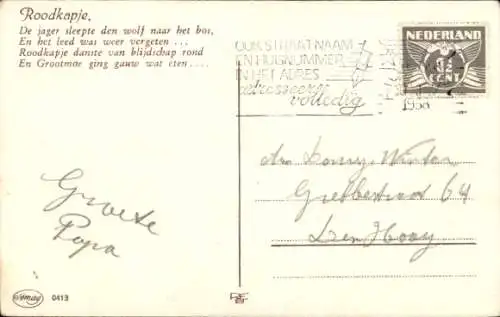 Roodkapje.
De jager sleepte den wolf naar het bos,
En het leed was weer vergeten ...
Roodkapje danste van blijdschap rond
En Grootmoe ging gauw wat eten ....
OOK STRAATNAAM
EN HUISNUMMER
IN HET ADRES
adresseert
volledig
1938
NEDERLAND
CENT
Groete
Papa
64
Den Haag
0413